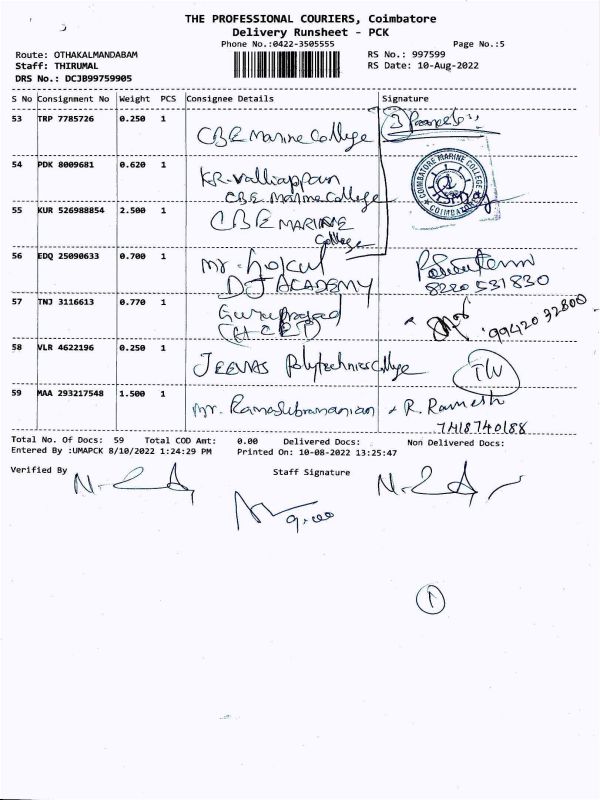 THE PROFESSIONAL COURIERS, Coimbatore
Delivery Runsheet - PCK
Phone No.:0422-3505555
Page No.:5
Route: OTHAKALMANDABAM
RS No.: 997599
Staff: THIRUMAL
RS Date: 10-Aug-2022
DRS No.: DCJB99759905
S No Consignment No Weight PCS Consignee Details Signature
53 TRP 7785726 0.250 1
CBE Marine College
54 PDK 8009681 0.620 1
KR. Valliappan
CBE Marine College
COIMBATORE MARINE COLLEGE
COIMBATORE
55 KUR 526988854 2.500 1
CBE MARINE
College
56 EDQ 25090633 0.700 1
Mr. Gokul
DJ ACADEMY
8220 531830
57 TNJ 3116613 0.770 1
Guru Prasad
99420 32800
58 VLR 4622196 0.250 1
JEEVAS Polytechnic College
TW
59 MAA 293217548 1.500 1
Mr. Ramasubramanian R. Ramesh
7418740188
Total No. Of Docs: 59 Total COD Amt: 0.00 Delivered Docs: Non Delivered Docs:
Entered By :UMAPCK 8/10/2022 1:24:29 PM Printed On: 10-08-2022 13:25:47
Verified By Staff Signature
9.00
1